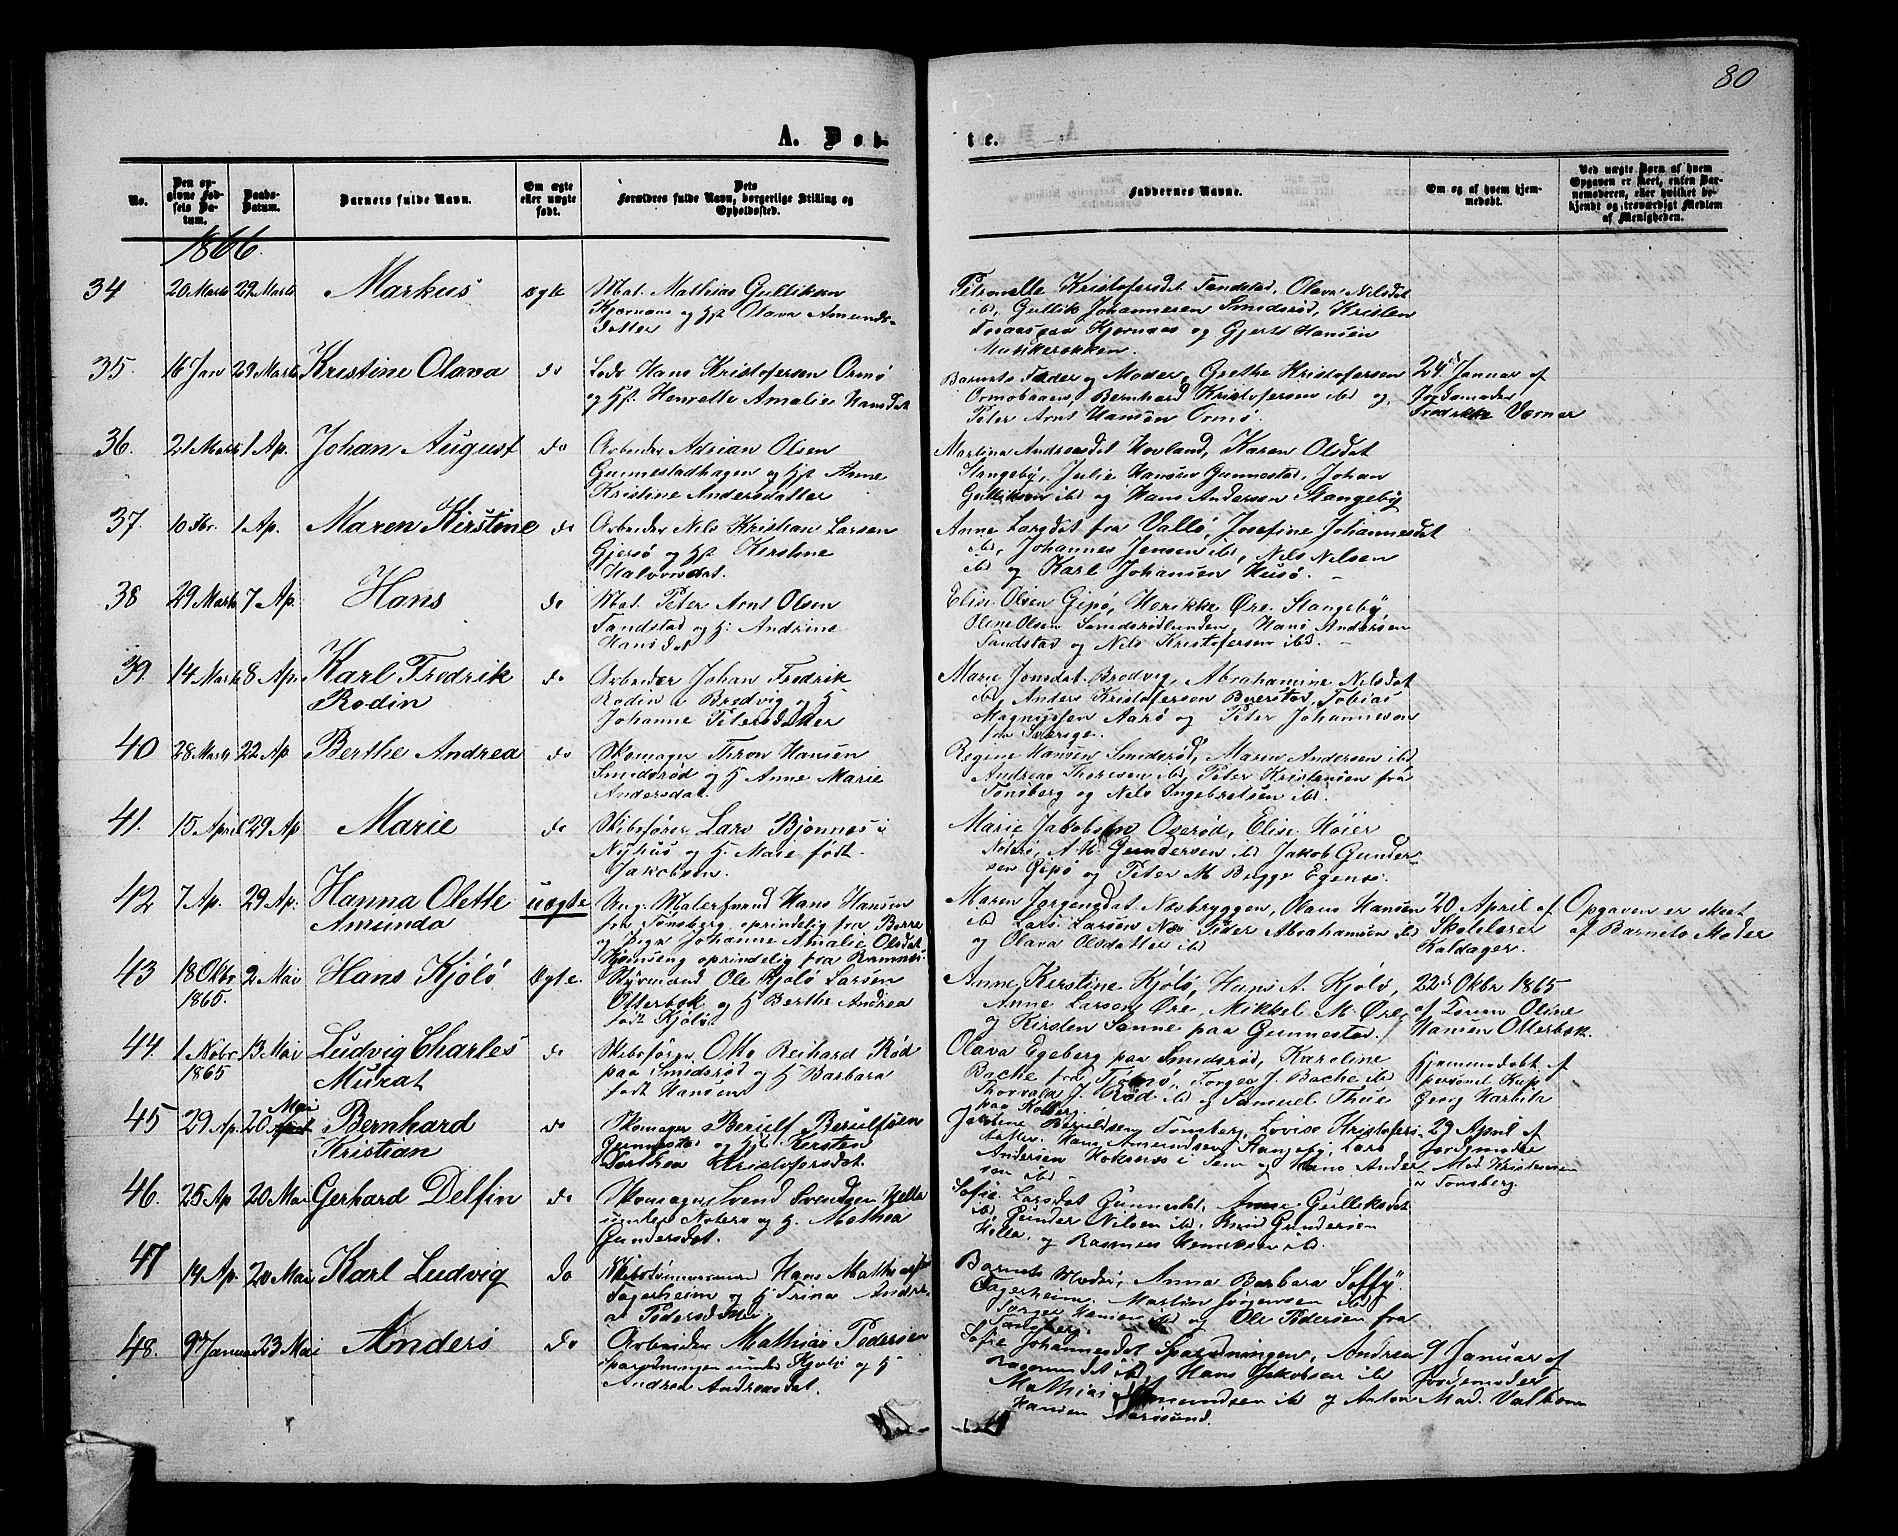 80
A. Døb-
te.
No.
Den op-
givne Fød-
sels Da-
tum.
Daabs-
Datum.
Barnets fulde Navn.
Om ægte
eller uægte
født.
Dets
Forældres fulde Navn, borgerlige Stilling og
Opholdssted.
Faddernes Navne.
Om og af hvem hjem-
medøbt.
Ved uægte Børn af hvem
Opgaven er skeet, enten Bar-
nemoderen, eller hvilket be-
kjendt og troværdigt Medlem
af Menigheden.
1866.
34 20 Marts 29 Marts Markus ægte
Mat. Mathias Gulliksen
Kjørnaas og Hst Olava Amunds-
datter
Petronelle Kristofersdat Sandstad, Olava Nilsdat
ibd, Gullik Johannesen Smidsrød, Kristen
paa Kjørnaas og Gjert Hansen
35. 16 Jan 29 Marts Kristine Olava do
Lods Hans Kristofersen Ormø
og Hst. Henrette Amalie Hansdat
Barnets Fader og Moder, Grethe Kristofersen
Ormobaaen, Bernhard Kristofersen ibd og
Peter Arnt Hansen Ormø
24de Januar af
Jordemoder
Fredrikke Værner
36. 21 Marts 1 Ap. Johan August do
Arbeider Adrian Olsen
Gunnestadhagen og Hst Anne
Kristine Andersdatter
Martina Andreasdat Hovland, Karen Olsdat
Stangeby, Julie Hansen Gunnestad, Johan
Gulliksen ibd og Hans Andersen Stangeby
37. 10 Fbr. 1 Ap. Maren Kirstine do
Arbeider Nils Kristian Larsen
Gjersø og Hst Kirstine
Halvorsdat.
Anne Larsdat fra Vallø, Josefine Johannesdat
ibd, Johannes Jensen ibd, Nils Nilsen
ibd og Karl Johansen Husø.
38 29 Marts 7 Ap. Hans do
Mat. Peter Arnt Olsen
Sandstad og H. Andrine
Hansdat
Elise Olsen Gipø, Henrikke Øre Stangeby,
Oline Olsen Smidsrødlunden, Hans Andersen
Sandstad og Nils Kristofersen ibd.
39. 14 Marts 8 Ap. Karl Fredrik
Rodin do
Arbeider Johan Fredrik
Rodin i Bredvig og H
Johanne Petersdatter
Marie Jonsdat Bredvig, Abrahamine Nilsdat
ibd, Anders Kristofersen Buerstad, Tobias
Magnussen Aarø og Peter Johannesen
fra Sverige.
40 28 Marts 22 Ap Berthe Andrea do
Skomager Thron Hansen
Smidsrød og H Anne Marie
Andersdat.
Regine Hansen Smidsrød, Maren Andersen ibd
Andreas Thoresen ibd, Peter Kristensen fra
Tønsberg og Nils Ingebretsen ibd.
41. 15 April 29 Ap Marie do
Skibsfører Lars Bjønnes i
Nyhus og H. Marie født
Jakobsen.
Marie Jakobsen Oserød, Elise Høier
Nøterø, A. M. Gundersen ibd Jakob Gunder-
sen Gipø og Peter M Bugge Egenes.
42 7 Ap. 29 Ap. Hanna Olette
Amunda uægte
Ung. Malersvend Hans Hansen
fra Tønsberg, oprindelig fra Borre
og Pige Johanne Amalie Olsdat
oprindelig fra Ramnes.
Maren Jørgensdat Næsbryggen, Olaus Hansen
ibd Lars Larsen Næs, Peder Abrahamsen ibd
og Olava Olsdatter ibd
20 April af
Skolelærer
Kaldager.
Opgaven er skeet
af Barnets Moder
43 18 Oktbr
1865. 2 Mai Hans Kjølø ægte.
Styrmand Ole Kjølø Larsen
Otterbek og H Berthe Andrea
født Kjølø
Anne Kirstine Kjølø, Hans A. Kjølø,
Anne Larsen Øre, Mikkel M. Øre,
og Kirsten Sanne paa Gunnestad.
22de Oktbr 1865
af Toren Oline
Hansen Otterbek.
44. 1 Novbr
1865 13 Mai Ludvig Charles
Murat do
Skibsfører Otto Reihard Rød
paa Smidsrød og H Barbara
født Hansen
Olava Egeberg paa Smidsrød, Karoline
Bache fra Tjømø, Torger J. Bache ibd
Thorvald J. Rød ibd og Samuel Thue
paa Kolberg.
Hjemmedøbt af
George
45 29 Ap. 20 Mai Bernhard
Kristian do
Skomager Berulf Berulfsen
Gunnestad og Hst. Kirsten
Dorthea Kristofersdat.
Berulfsen Tønsberg, Lovise Kristofers-
datter, Hans Amundsen, Stangeby, Lars
Andersen Hoksnes i Sem og Hans Ander-
sen ibd
29 April af
Jordemoder
Mad. Kristensen
i Tønsberg.
46. 25 Ap 20 Mai Gerhard Delfin do
Skomager Svend Svendsen Hella
under Nøterø og H. Mathea
Gundersdat.
Sofie Larsdat Gunnestad, Anne Gulliksdat
ibd Gunder Nilsen ibd, Knud Gundersen
Hella, og Rasmus Henriksen ibd.
47 14 Ap. 20 Mai Karl Ludvig do
Skibstømmermand Hans Mathiesen
Fagerheim og H Trina Andre-
a Pedersdatter
Barnets Moder, Anna Barbara Soffy
Fagerheim, Martin Jørgensen ibd
Torger Hansen ibd og Ole Pedersen fra
Tønsberg.
48. 9de Januar 23 Mai Anders do
Arbeider Mathias Pedersen
Sparvningen under Kjølø og H
Andrea Andreasdat.
Sofie Johannesdat Sparvningen, Andrea
ibd, Hans Jakobsen ibd
Mathias Amundsen ibd og Anton
Hansen Aarøsund.
9 Januar af
Jordemoder
Mad. Valbom